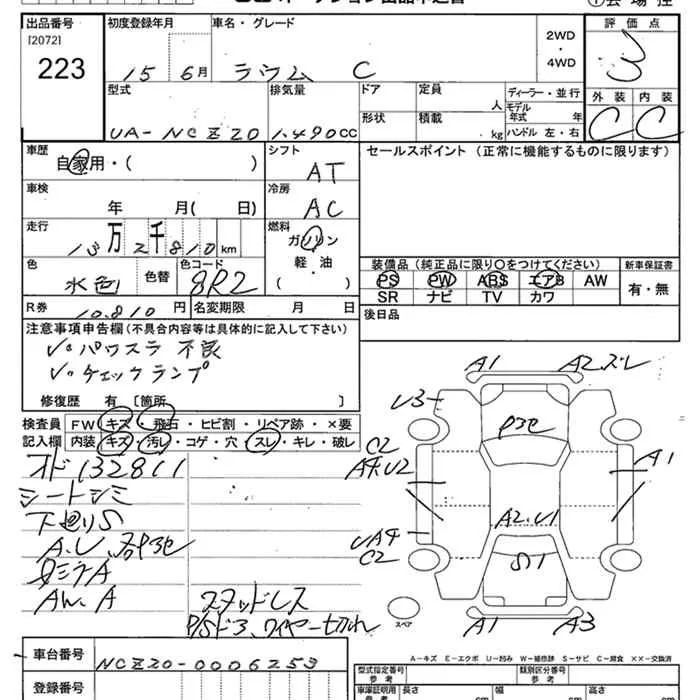 出品番号 初度登録年月 車名・グレード 評価点
[2072]
223 15 6月 ラウム C 2WD・4WD 3
型式 排気量 ドア 定員 人 ディーラー・並行 外装 内装
モデル年式 年
UA-NCZ20 1.490CC 形状 積載 kg ハンドル 左・右 C C
車歴 シフト セールスポイント (正常に機能するものに限ります)
自家用・( ) AT
車検 冷房
年 月( 日) AC
走行 燃料
13万2千810km ガソリン
色 色替 色コード 軽・油 装備品 (純正品に限り○をつけてください) 新車保証書
水色 8R2 ( ) PS PW ABS エアB AW 有・無
R券 10.810円 名変期限 月 日 SR ナビ TV カワ
注意事項申告欄 (不具合内容等は具体的に記入して下さい) 後日品
パワスラ 不良
チェックランプ
修復歴 有 [箇所 ]
検査員 FW キズ・飛石・ヒビ割・リペア跡・×要
記入欄 内装 キズ・汚レ・コゲ・穴・スレ・キレ・破レ
オド 132811
シートシミ
A.U
AW.A
スタッドレス
A1 A2.ズレ
U3
C2
A4.U2 A1
A2.U1
UA4
C2 S1
A1 A3
スペア
A-キズ E-エクボ U-凹み W-補修跡 S-サビ C-腐食 ××-交換済
車台番号 NCZ20-0006253
登録番号
型式指定番号 参考 類別区分番号 参考
車庫証明用 参考 長さ cm 幅 cm 高さ cm